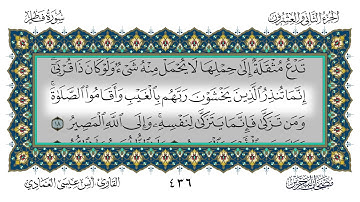 سُورَةُ فَاطِرٍ
الجزء الثاني والعشرون
تَدْعُ مُثْقَلَةٌ إِلَىٰ حِمْلِهَا لَا يُحْمَلْ مِنْهُ شَيْءٌ وَلَوْ كَانَ ذَا قُرْبَىٰٓ
إِنَّمَا تُنذِرُ الَّذِينَ يَخْشَوْنَ رَبَّهُم بِالْغَيْبِ وَأَقَامُوا الصَّلَوٰةَ
وَمَن تَزَكَّىٰ فَإِنَّمَا يَتَزَكَّىٰ لِنَفْسِهِۦ وَإِلَى اللَّهِ الْمَصِيرُ ١٨
القارئ: ابن عيسى العمادي
٤٣٦